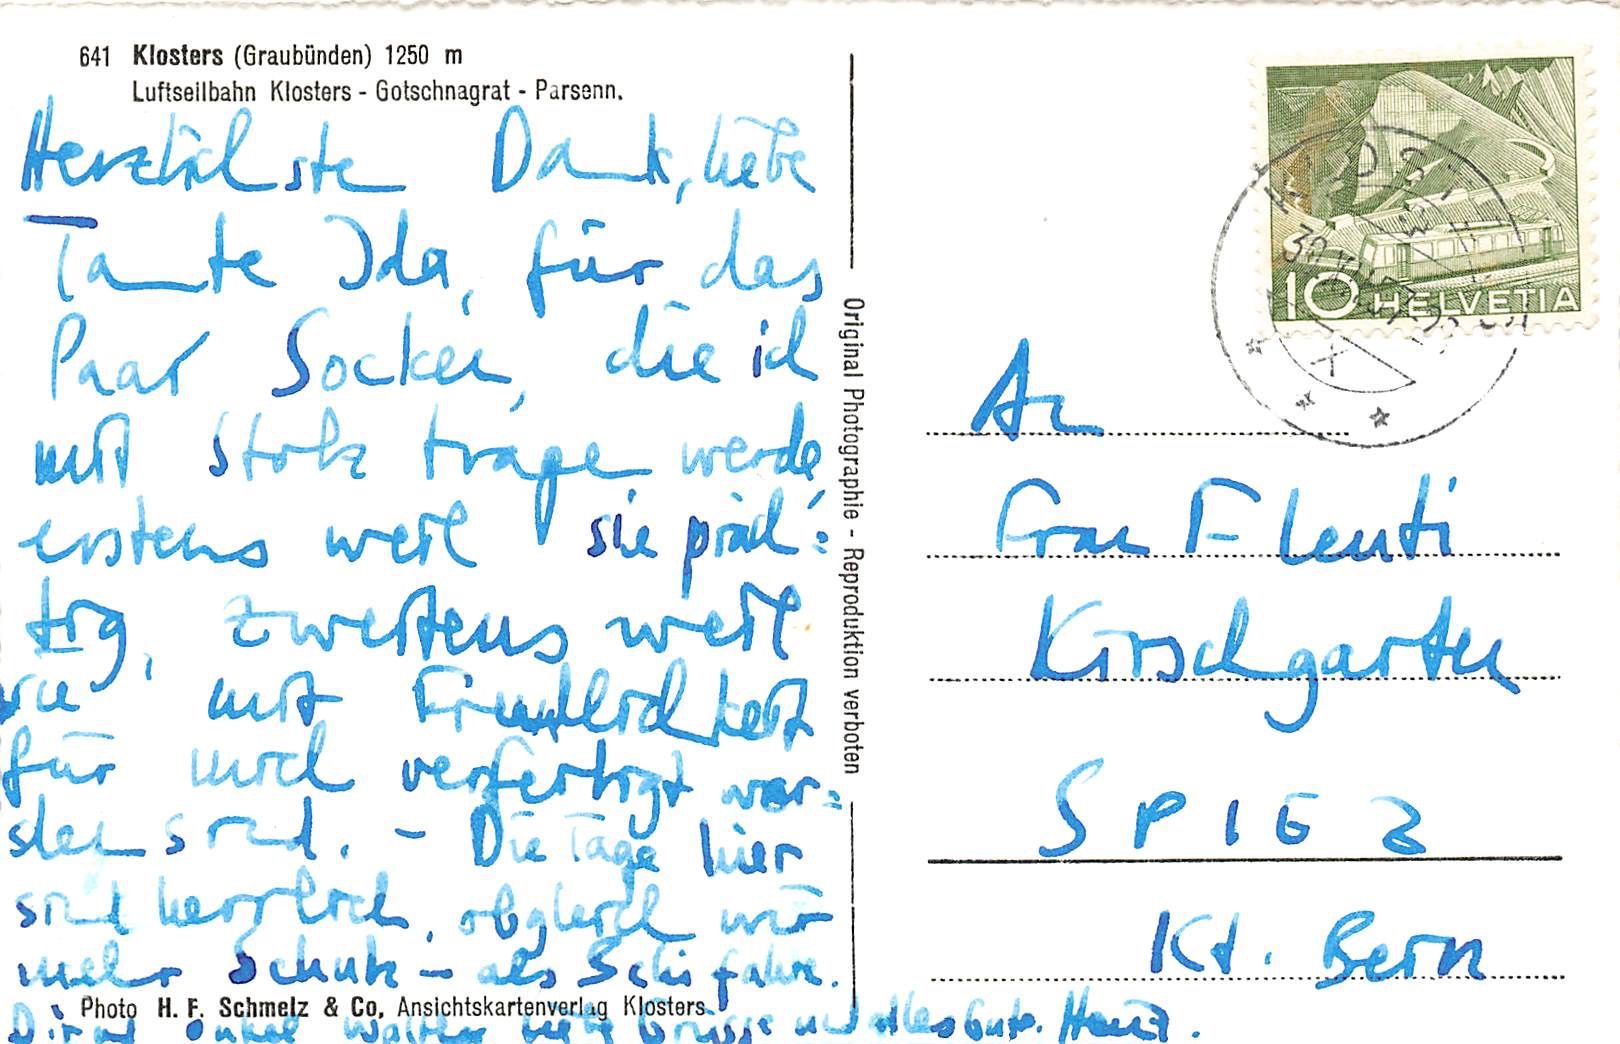 641 Klosters (Graubünden) 1250 m
Luftseilbahn Klosters - Gotschnagrat - Parsenn.
Herzlichste Dank, liebe
Tante Ida, für das
Paar Socken, die ich
mit Stolz trage werde
erstens weil sie präch=
tig, zweitens weil
sie mit Freundlichkeit
für mich verfertigt wor=
den sind. - Die Tage hier
sind herrlich, obgleich wir
mehr Schutz - als Schi fahre.
Dir und Onkel Walther liebe Grüsse und alles Gute. Heinz.
Photo H. F. Schmelz & Co, Ansichtskartenverlag Klosters.
Original Photographie - Reproduktion verboten
10 HELVETIA
KLOSTERS
An
Frau F Leuti
Kirschgarten
SPIEZ
Kt. Bern